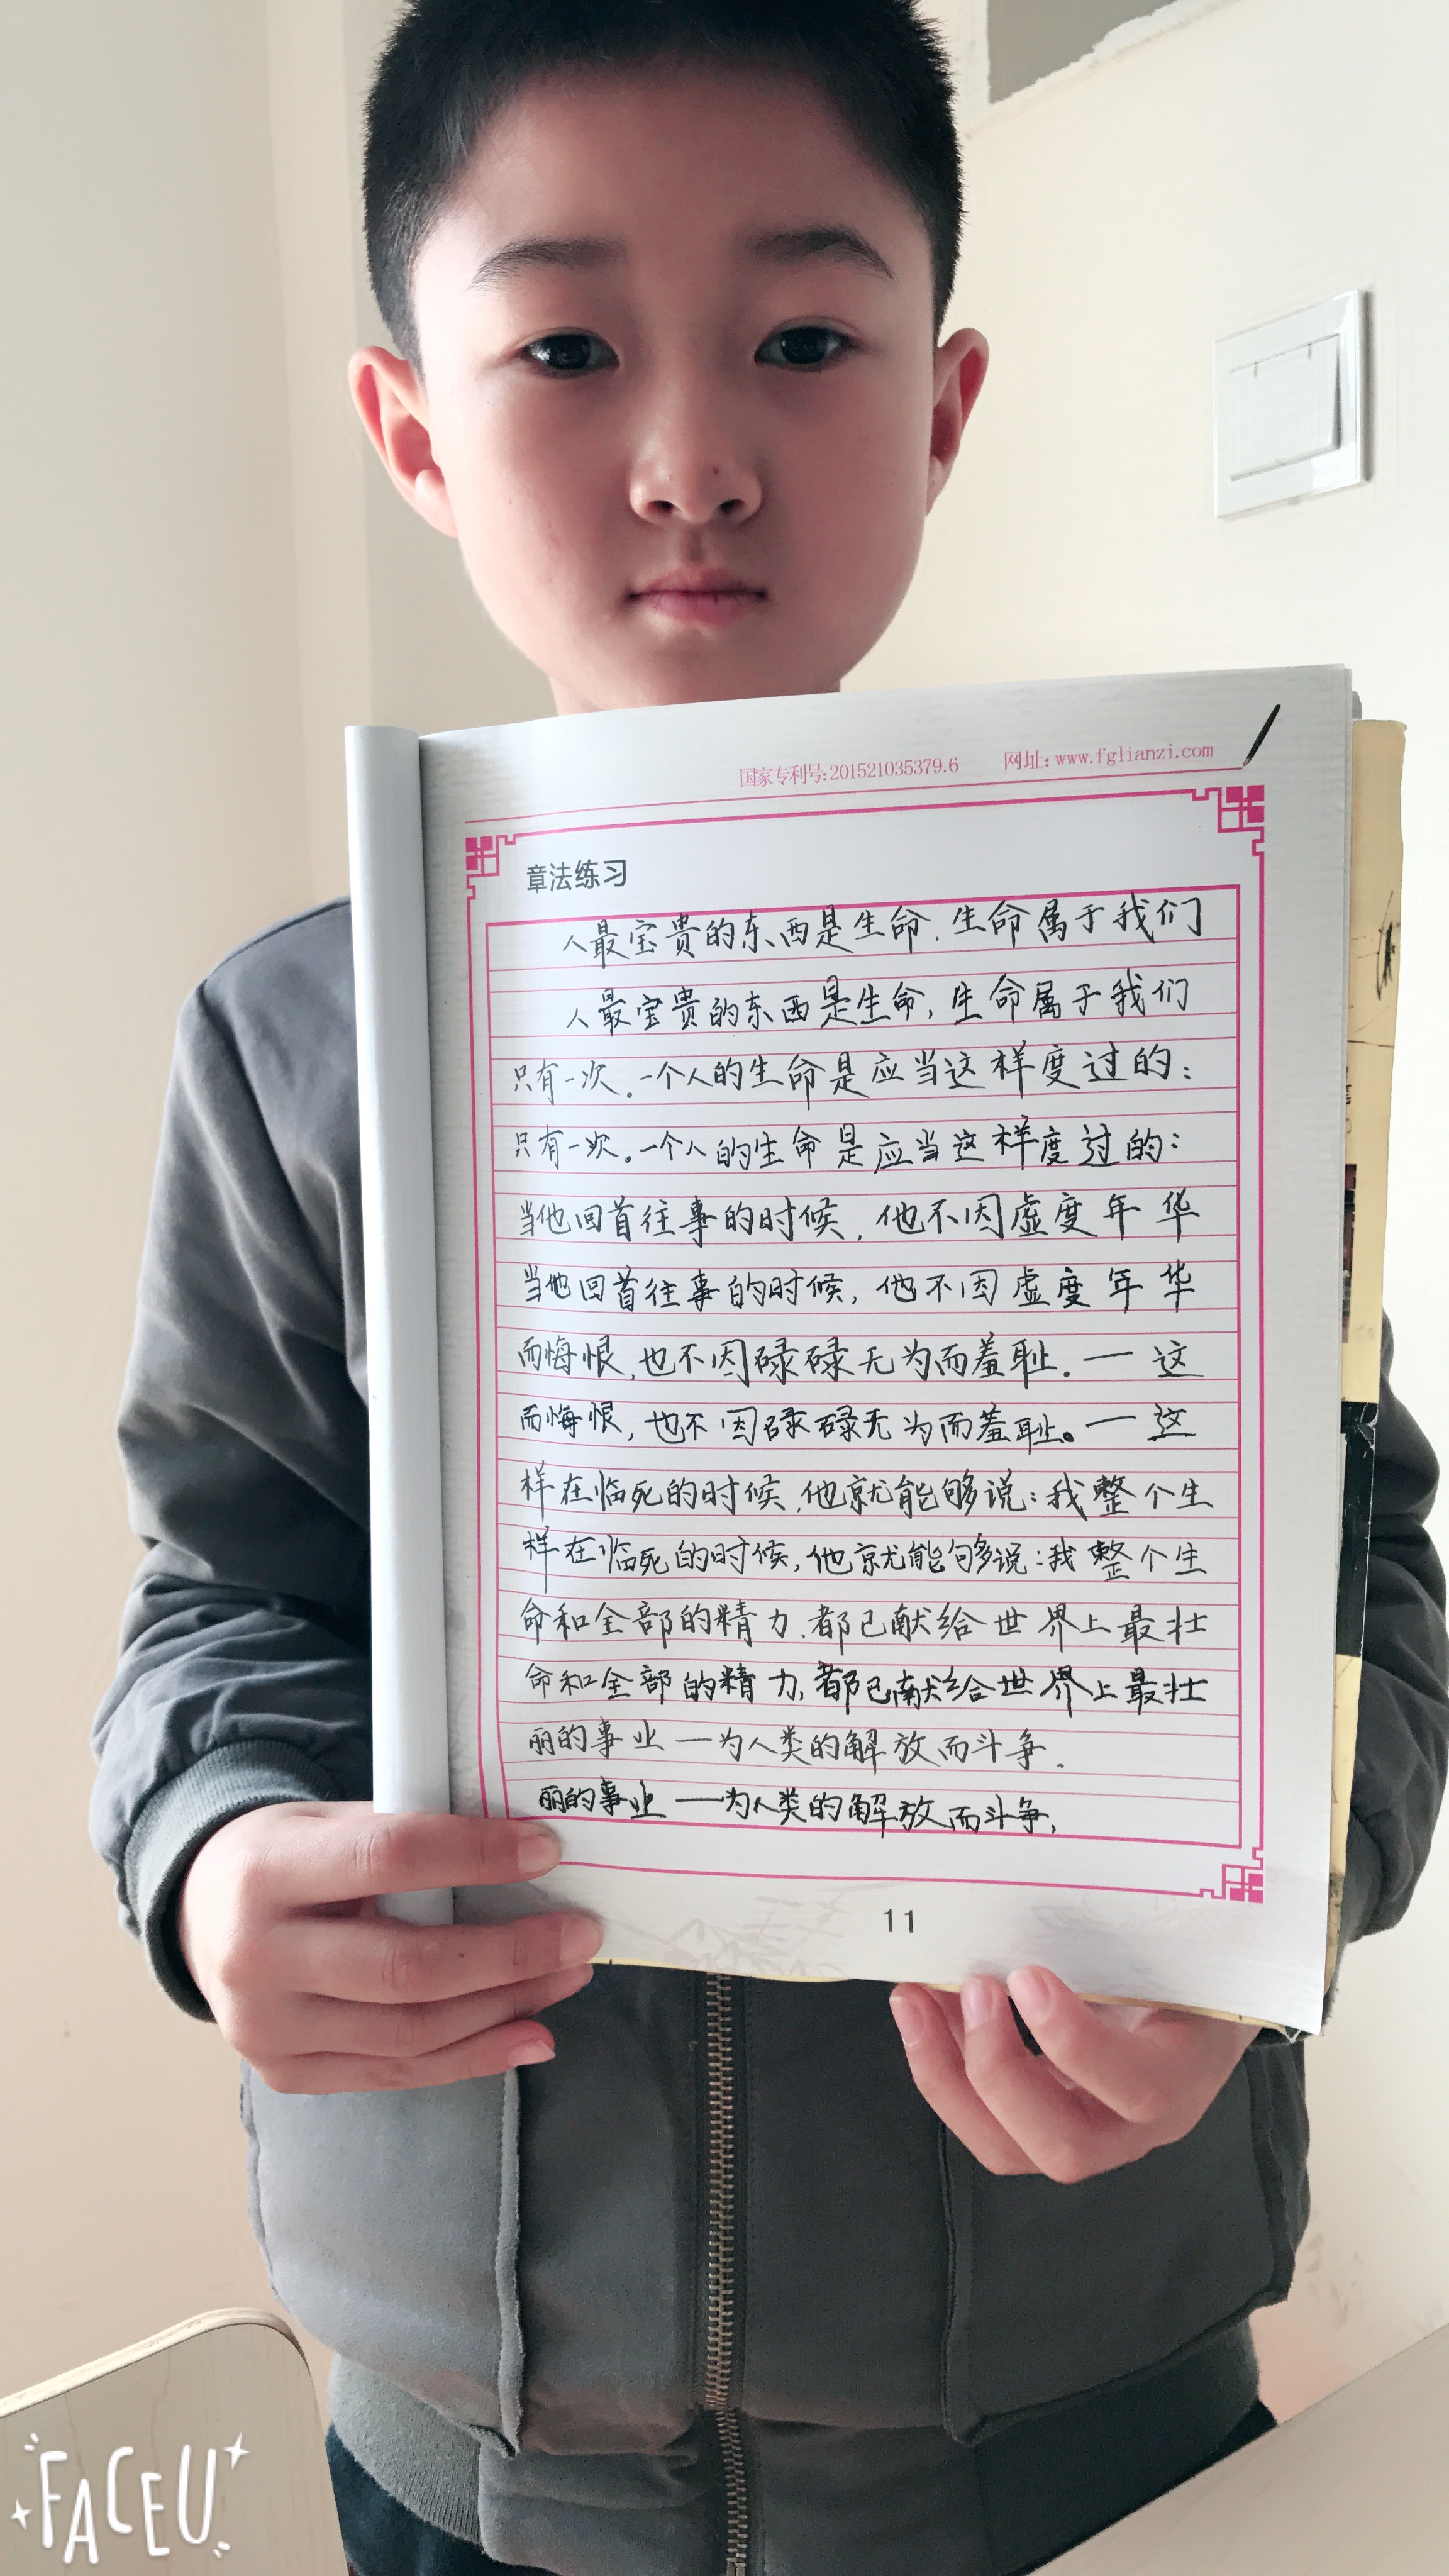 国家专利号:201521035379.6 网址:www.fglianzi.com
章法练习
人最宝贵的东西是生命.生命属于我们
人最宝贵的东西是生命,生命属于我们
只有一次。一个人的生命是应当这样度过的:
只有一次。一个人的生命是应当这样度过的:
当他回首往事的时候,他不因虚度年华
当他回首往事的时候,他不因虚度年华
而悔恨,也不因碌碌无为而羞耻.一这
而悔恨,也不因碌碌无为而羞耻。一这
样在临死的时候,他就能够说:我整个生
样在临死的时候,他就能够说:我整个生
命和全部的精力.都已献给世界上最壮
命和全部的精力,都已献给世界上最壮
丽的事业一为人类的解放而斗争.
丽的事业一为人类的解放而斗争,
11
FACEU